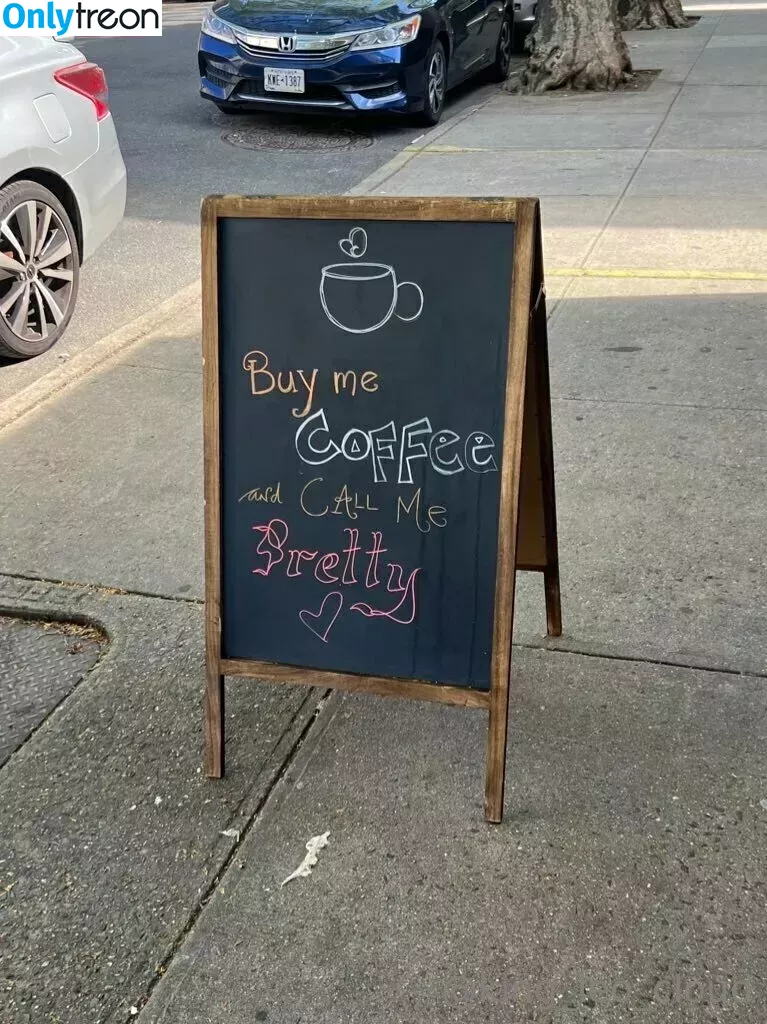 Onlytreon
KWE-1387
Buy me
COFFEE
and CALL Me
Pretty